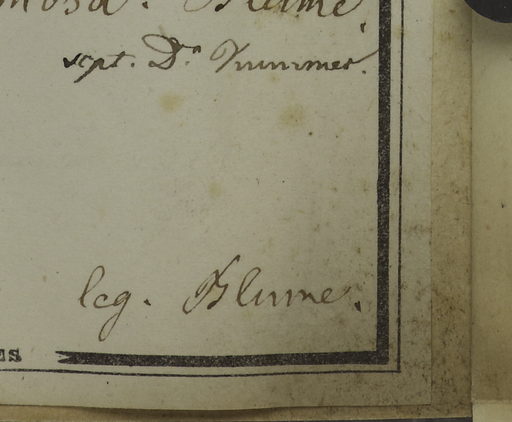 mosa. Blume.
scpt. Dr. Trimmer.
leg. Blume.
ES